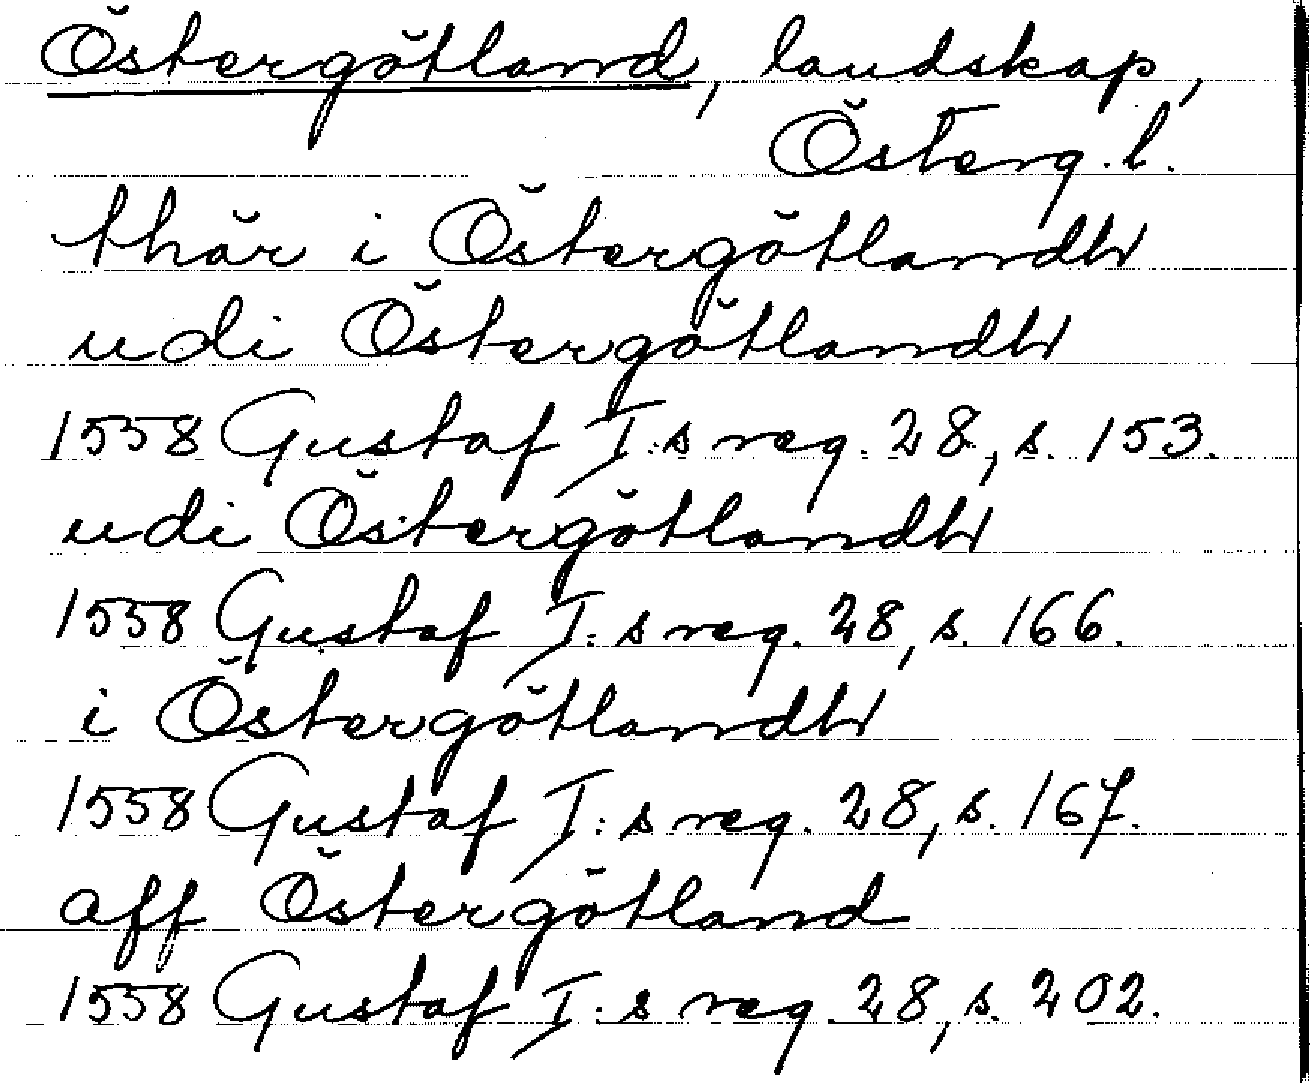 Östergötland, landskap,
Österg. l.
thär i Östergötlandh
udi Östergötlandh
1558 Gustaf I:s reg. 28, s. 153.
udi Östergötlandh
1558 Gustaf I:s reg. 28, s. 166.
i Östergötlandh
1558 Gustaf I:s reg. 28, s. 167.
aff Östergötland
1558 Gustaf I:s reg. 28, s. 202.